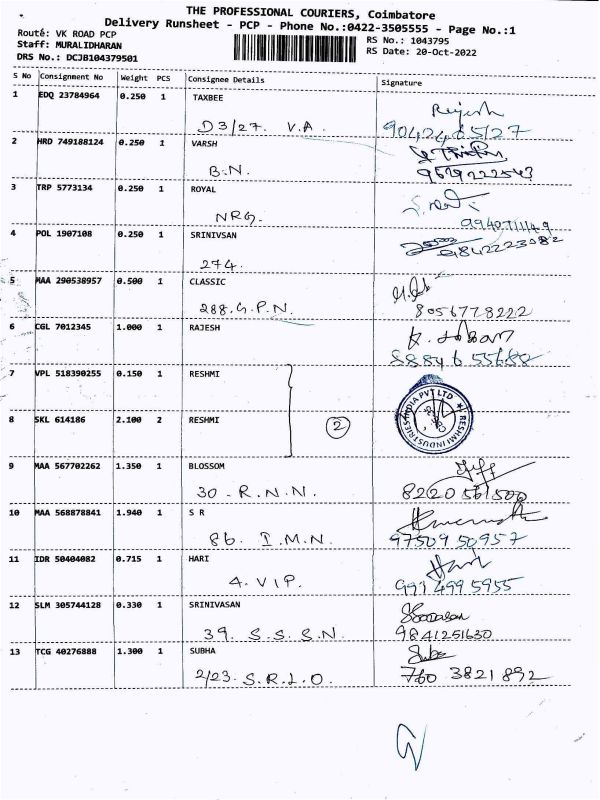 THE PROFESSIONAL COURIERS, Coimbatore
Delivery Runsheet - PCP - Phone No.:0422-3505555 - Page No.:1
Route: VK ROAD PCP
RS No.: 1043795
Staff: MURALIDHARAN
RS Date: 20-Oct-2022
DRS No.: DCJB104379501
S No Consignment No Weight PCS Consignee Details Signature
1 EDQ 23784964 0.250 1 TAXBEE
D3/27. V.A.
2 HRD 749188124 0.250 1 VARSH
B.N. 9629222543
3 TRP 5773134 0.250 1 ROYAL
NRG.
4 POL 1907108 0.250 1 SRINIVSAN
274. 9842223082
5 MAA 290538957 0.500 1 CLASSIC
288.G.P.N. 8056778222
6 CGL 7012345 1.000 1 RAJESH
7 VPL 518390255 0.150 1 RESHMI
RESHMI INDUSTRIES INDIA PVT LTD
8 SKL 614186 2.100 2 RESHMI
2
9 MAA 567702262 1.350 1 BLOSSOM
30-R.N.N. 8220561500
10 MAA 568878841 1.940 1 S R
86. I.M.N. 9750950957
11 IDR 50404082 0.715 1 HARI
4. VIP. 9914995955
12 SLM 305744128 0.330 1 SRINIVASAN
39. S.S.S.N. 9841251630
13 TCG 40276888 1.300 1 SUBHA Suba
2/23. S.R.L.O. 760 3821 892